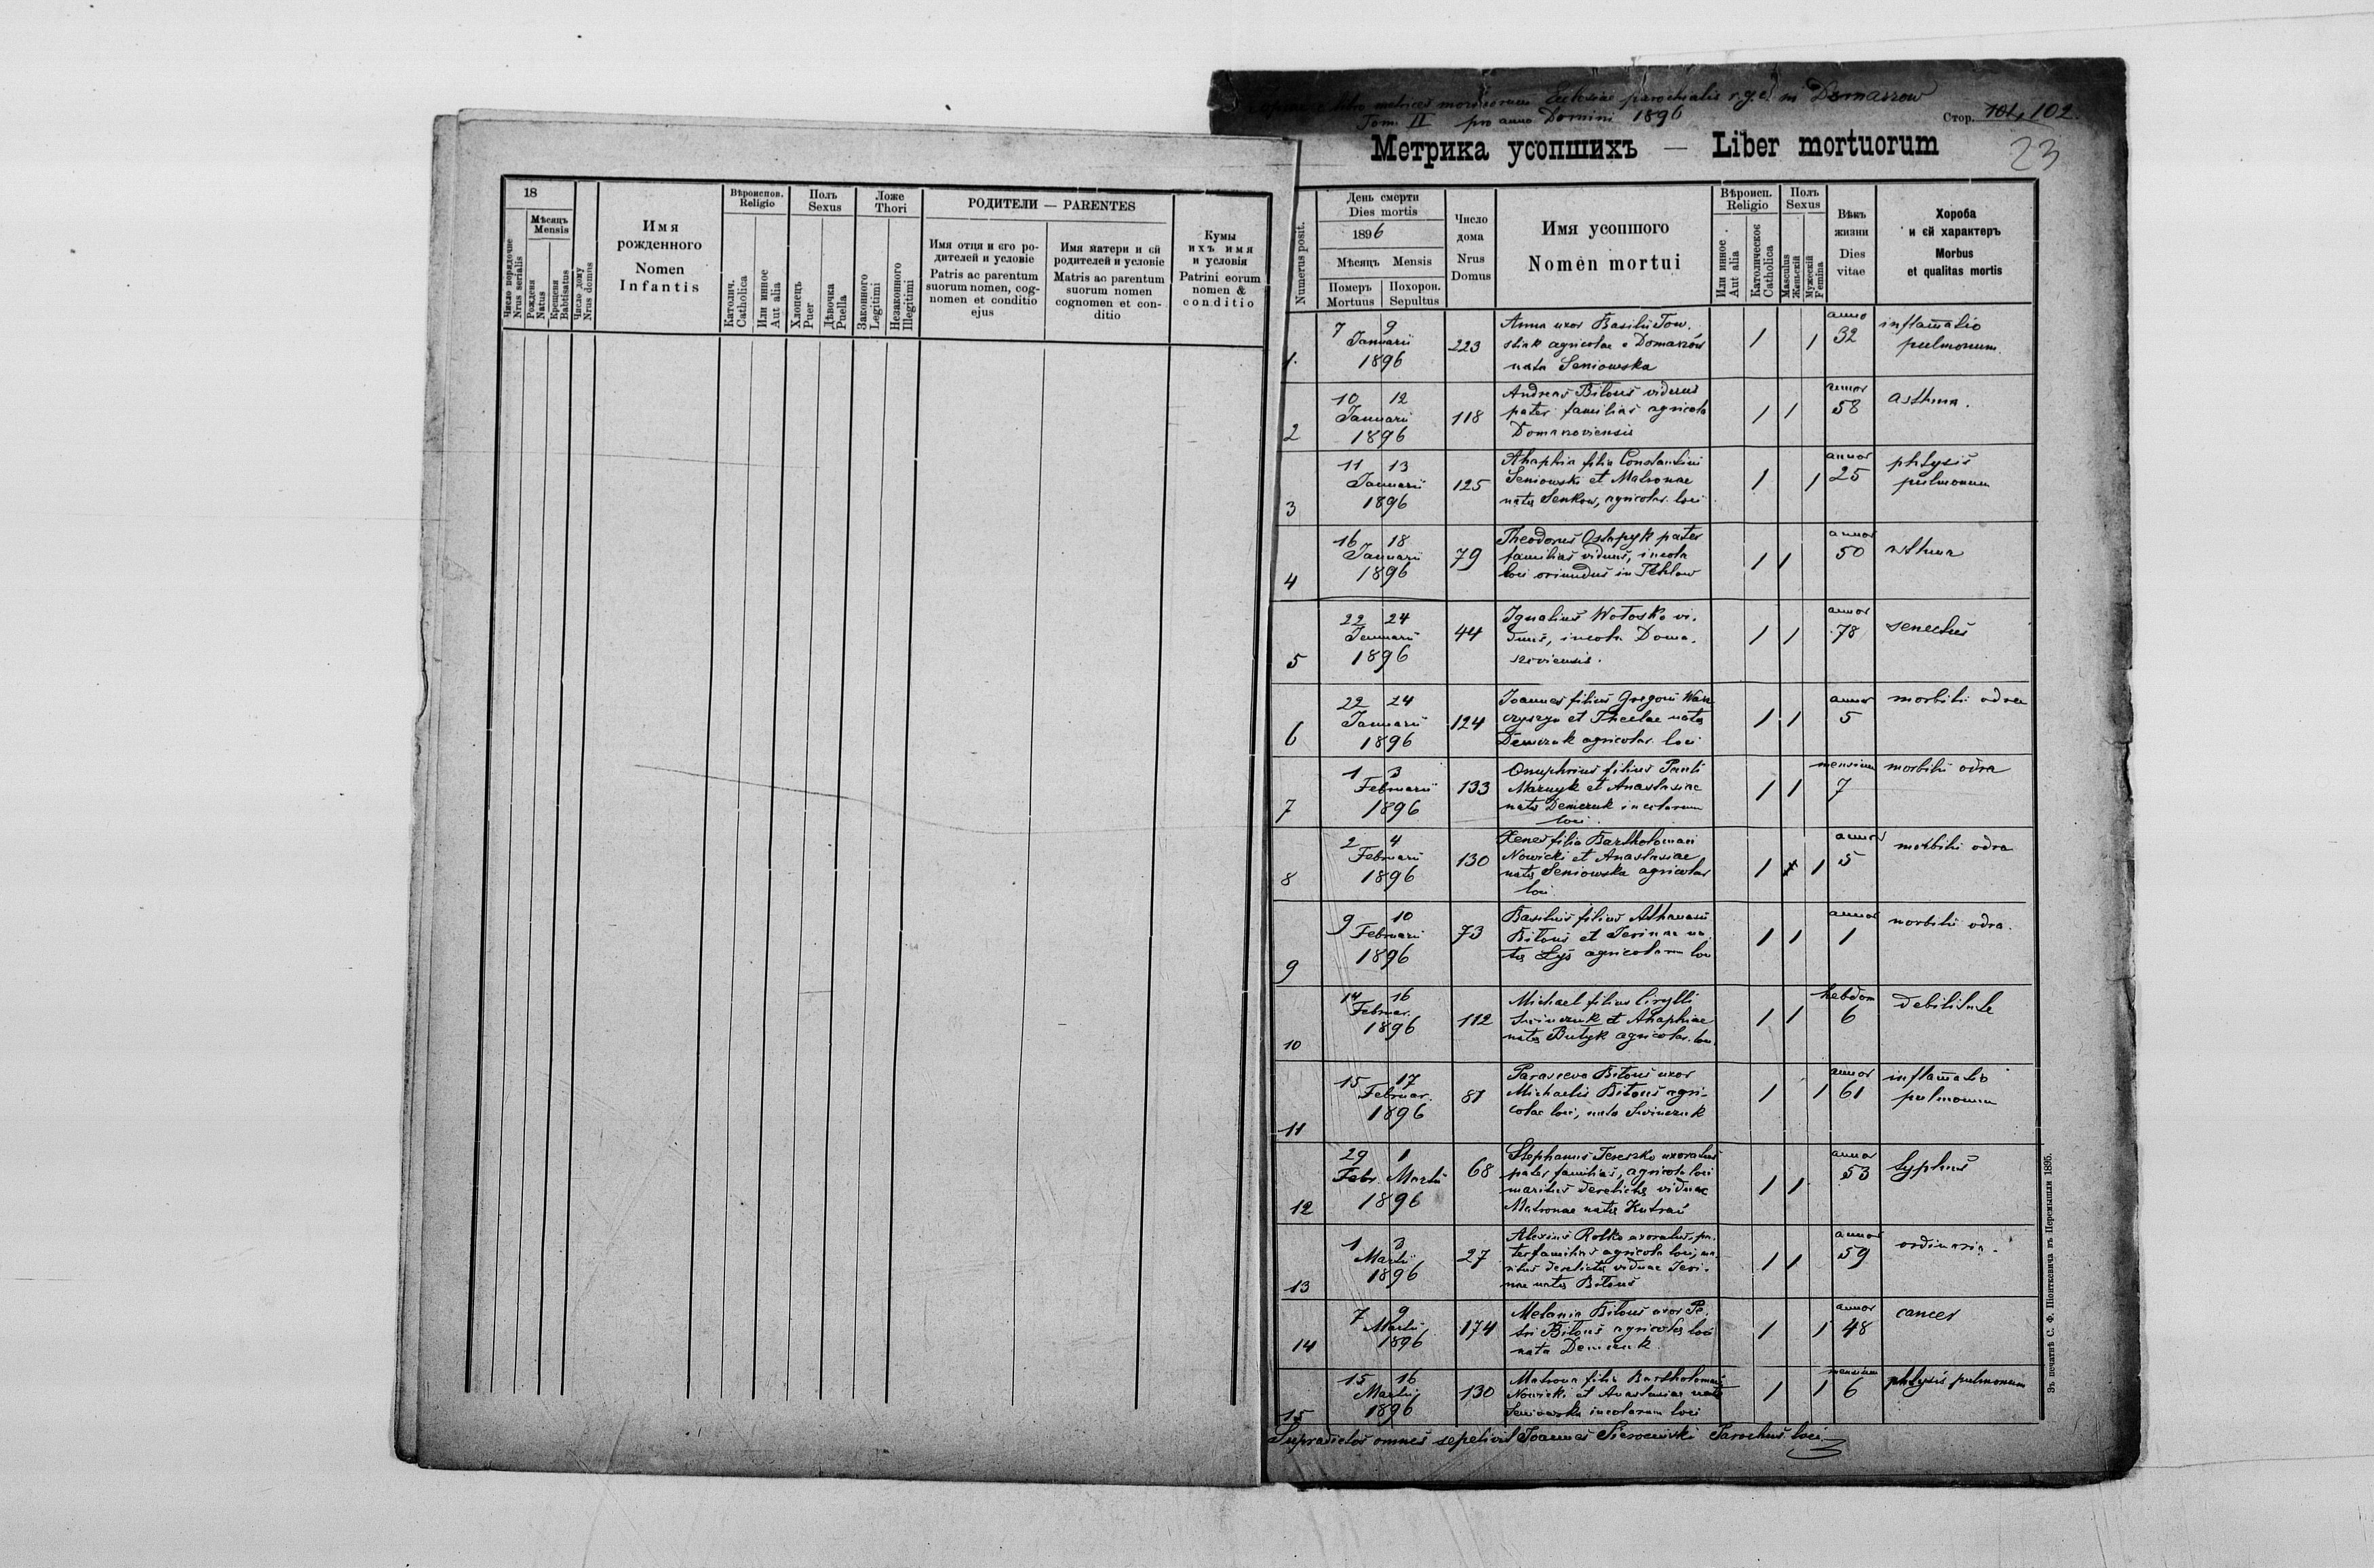 18
Мѣсяцъ
Mensis
Число порядочне
Nrus serialis
Рожденя
Natus
Крещеня
Babtisatus
Число дому
Nrus domus
Имя
рожденного
Nomen
Infantis
Вѣроиспов.
Religio
Католич.
Catholica
Или инное
Aut alia
Полъ
Sexus
Хлопець
Puer
Дѣвочка
Puella
Ложе
Thori
Законного
Legitimi
Незаконного
Illegitimi
РОДИТЕЛИ — PARENTES
Имя отця и его ро-
дителей и условіе
Patris ac parentum
suorum nomen, cog-
nomen et conditio
ejus
Имя матери и єй
родителей и условіе
Matris ac parentum
suorum nomen
cognomen et con-
ditio
Кумы
ихъ имя
и условія
Patrini eorum
nomen &
conditio
libro metrices mortuorum Ecclesiae parochialis r.g.c. in Domaszow
Tom. II pro anno Domini 1896
Стор. 101, 102.
23
Метрика усопшихъ — Liber mortuorum
Numerus posit.
День смерти
Dies mortis
1896
Мѣсяцъ Mensis
Померъ
Mortuus
Похорон.
Sepultus
Число
дома
Nrus
Domus
Имя усопшого
Nomen mortui
Вѣроисп.
Religio
Или инное
Aut alia
Католическоє
Catholica
Полъ
Sexus
Masculus
Женьскій
Мужескій
Femina
Вѣкъ
жизни
Dies
vitae
Хороба
и єй характеръ
Morbus
et qualitas mortis
1. 7 9 Januarii 1896 223
Anna uxor Basilii Tow.
stiak agricolae e Domaszow
nata Seniowska
1 1 anno 32 inflamatio
pulmonum
2 10 12 Januarii 1896 118
Andreas Bitous viduus
pater familias agricola
Domaszoviensis
1 1 annor 58 asthma.
3 11 13 Januarii 1896 125
Ahaphia filia Constantini
Seniowski et Matronae
natae Senkow, agricolar. loci
1 1 annor 25 phtysis
pulmonum
4 16 18 Januarii 1896 79
Theodorus Ostapyk pater
familias viduus, incola
loci oriundus in
1 1 annor 50 asthma
5 22 24 Januarii 1896 44
Ignatius Wołosko vi.
duus, incola Doma.
szoviensis.
1 1 annor 78 senectus
6 22 24 Januarii 1896 124
Joannes filius Gregorii
et Theclae natae
Demczuk agricolar. loci
1 1 annor 5 morbilii odra
7 1 3 Februarii 1896 133
Onuphrius filius Pauli
Mazuryk et Anastasiae
natae Demczuk incolarum
loci.
1 1 mensium 7 morbilii odra
8 2 4 Februarii 1896 130
Xenes filia Bartholomaei
Nowicki et Anastasiae
natae Seniowska agricolar
loci
1 1 annor 5 morbilii odra
9 9 10 Februarii 1896 73
Basilius filius Athanasii
Bitous et Jerinae na.
tae Łyś agricolarum loci
1 1 annor 1 morbilii odra.
10 14 16 Februar. 1896 112
Michael filius Cirylli
Swinczuk et Ahaphiae
natae Butyk agricolar. loci
1 1 hebdom 6 debilitate
11 15 17 Februar. 1896 81
Parasceva Bitous uxor
Michaelis Bitous agri-
colae loci, nata Swinczuk
1 1 annor 61 inflamatio
pulmonum
12 29 1 Febr. Martii 1896 68
Stephanus Tereszko uxoratus
pater familias, agricola loci
maritus derelictae viduae
Matronae natae
1 1 annor 53 typhus
13 1 3 Martii 1896 27
Alexius Rolko uxoratus, pa.
terfamilias agricola loci, ma.
ritus derelictae viduae Jeri.
nae natae Bitous
1 1 annor 59 ordinaria.
14 7 9 Martii 1896 174
Melania Bitous uxor Pe.
tri Bitous agricolae loci
nata Demczuk.
1 1 annor 48 cancer
15 15 16 Martii 1896 130
Matrona filia Bartholomaei
Nowicki et Anastasiae natae
Seniowska incolarum loci
1 1 mensium 6 phtysis pulmonum
Supradictos omnes sepelivit Joannes Parochus loci
Зъ печатнѣ С. Ф. Піонткевича въ Перемышли 1895.